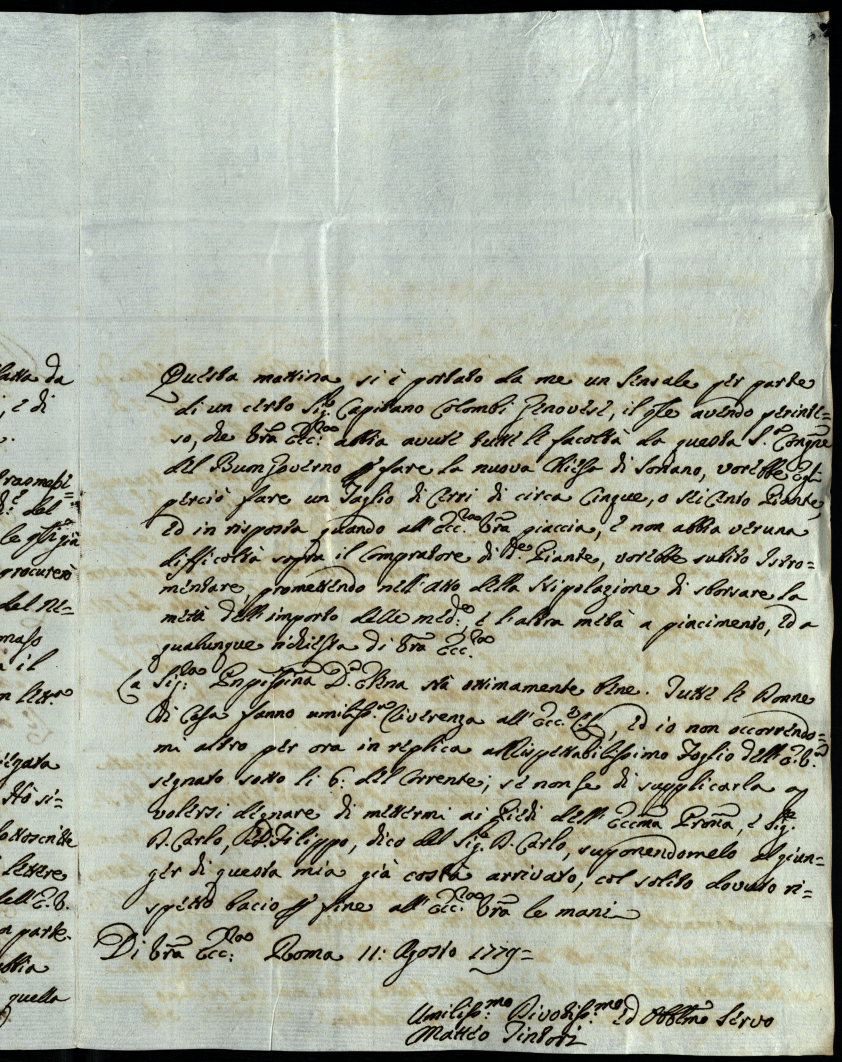 Questa mattina si è portato da me un sensale per parte
di un certo Sig.e Capitano Colombi Genovese, il qle avendo perinte=
so, che Vra Ecc:za abbia avute tutte le facoltà da questa S.a Congne
del Buon Governo p fare la nuova Chiesa di Soriano, vorebbe Egli
perciò fare un Taglio di Cerri di circa Cinque, o Seicento Piante,
ed in risposta quando all'Ecc:za Vra piaccia, e non abbia veruna
difficoltà sopra il Compratore di d.e Piante, vorebbe subito Istro=
mentare, promettendo nell'atto della Stipolazione di sborsare la
metà dell'importo delle med:e, e l'altra metà a piacimento, ed a
qualunque richiesta di Vra Ecc:za
La Sig:ra D.a Anna stà ottimamente bene. Tutte le Donne
di Casa fanno umiliss:a riverenza all'Ecc:e, ed io non occorrendo=
mi altro per ora in replica al Rispettabilissimo Foglio dell'E.V.
segnato sotto li 6: del Corrente; se non se di supplicarla a
volersi degnare di mettermi ai Piedi dell'Eccma Prona, e Sig.
D. Carlo, e D. Filippo, dico del Sig.e D. Carlo, suponendomelo al giun=
ger di questa mia già costà arrivato, col solito dovuto ri=
spetto bacio p fine all'Ecc:za Vra le mani
Di Vra Ecc:za Roma 11: Agosto 1779=
Umiliss:mo Divotiss:mo ed Obblmo Servo
Matteo Tintori